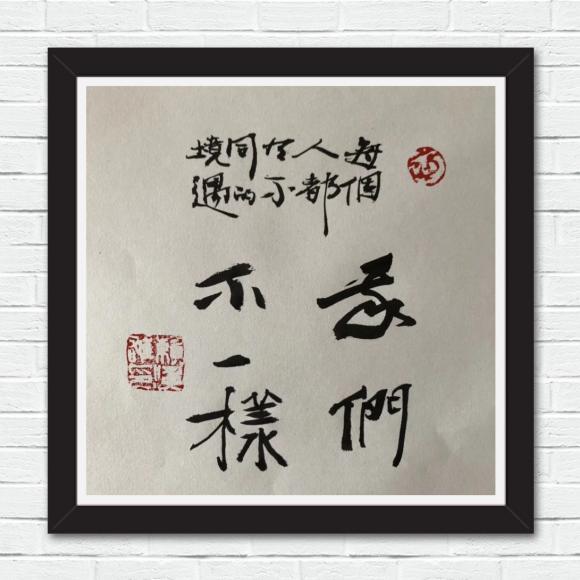 每個
人都
在不
同的
境遇
我們
不一樣